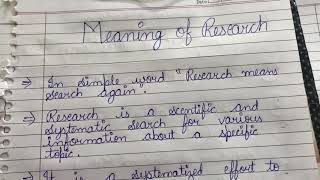 Meaning of Research
→ In simple word "Research means
search again.
→ Research is a scentific and
systematic search for various
information about a specific
topic.
→ It is a systematized effort to